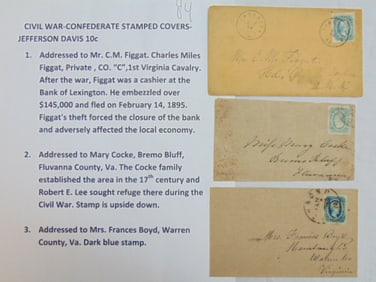 84
CIVIL WAR-CONFEDERATE STAMPED COVERS-
JEFFERSON DAVIS 10c
1. Addressed to Mr. C.M. Figgat. Charles Miles
Figgat, Private , CO. "C",1st Virginia Cavalry.
After the war, Figgat was a cashier at the
Bank of Lexington. He embezzled over
$145,000 and fled on February 14, 1895.
Figgat's theft forced the closure of the bank
and adversely affected the local economy.
2. Addressed to Mary Cocke, Bremo Bluff,
Fluvanna County, Va. The Cocke family
established the area in the 17th century and
Robert E. Lee sought refuge there during the
Civil War. Stamp is upside down.
3. Addressed to Mrs. Frances Boyd, Warren
County, Va. Dark blue stamp.
Mr C. M. Figgat
Miss Mary Cocke
Bremo Bluff
Fluvanna
Mrs. Frances Boyd
Virginia